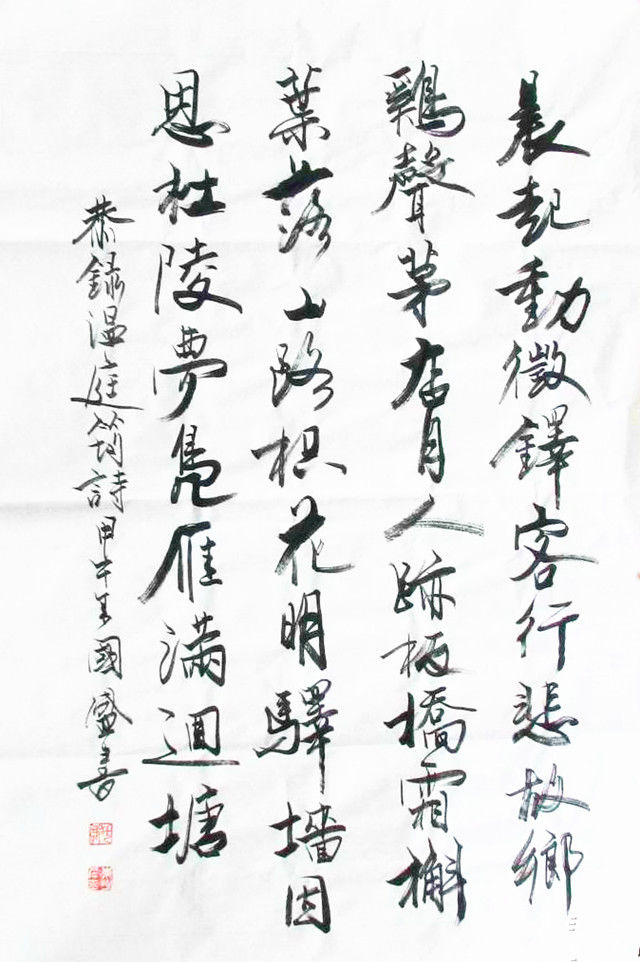 晨起動徵鐸客行悲故鄉
鷄聲茅店月人跡板橋霜槲
葉落山路枳花明驛墻因
思杜陵夢鳧雁滿迴塘
恭錄温庭筠詩甲午年國盛書